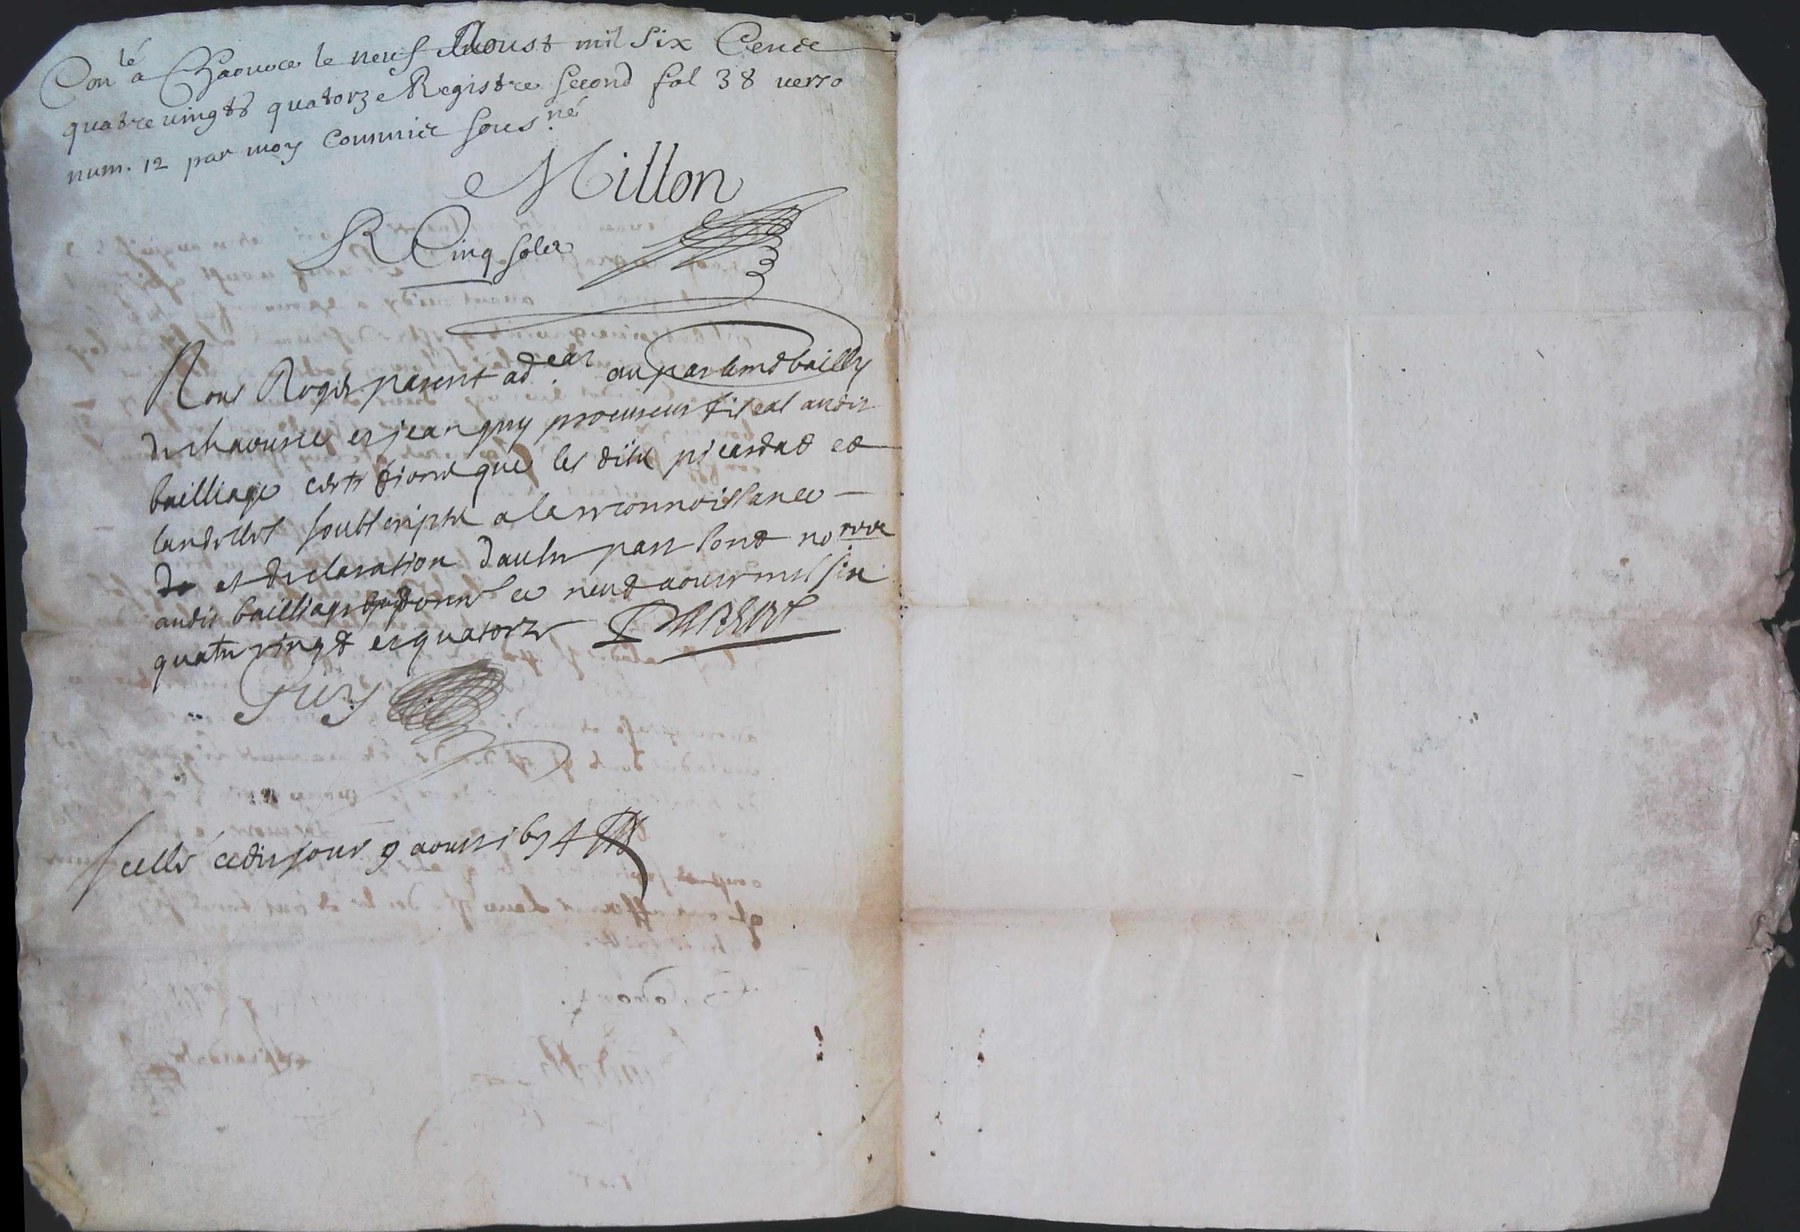 Con.lé a Chaource le neuf Aoust mil six Cents
quatre vingts quatorze Registre second fol 38 verso
num. 12 par moy Commis sous.né
Millon
R Cinq sols
Nous Roger parent ad.cat au parlemt bailly
de chaource et jean guy procureur fiscal audit
bailliage certifions que les dits picardat et
landillot soubscripts a la reconnoissance
de et declaration d'autre part sont no.res
audit bailliage donné ce neuf aoust mil six
quatre vingt et quatorze PARENT
Guy
scellé cedit jour 9 aoust 1694